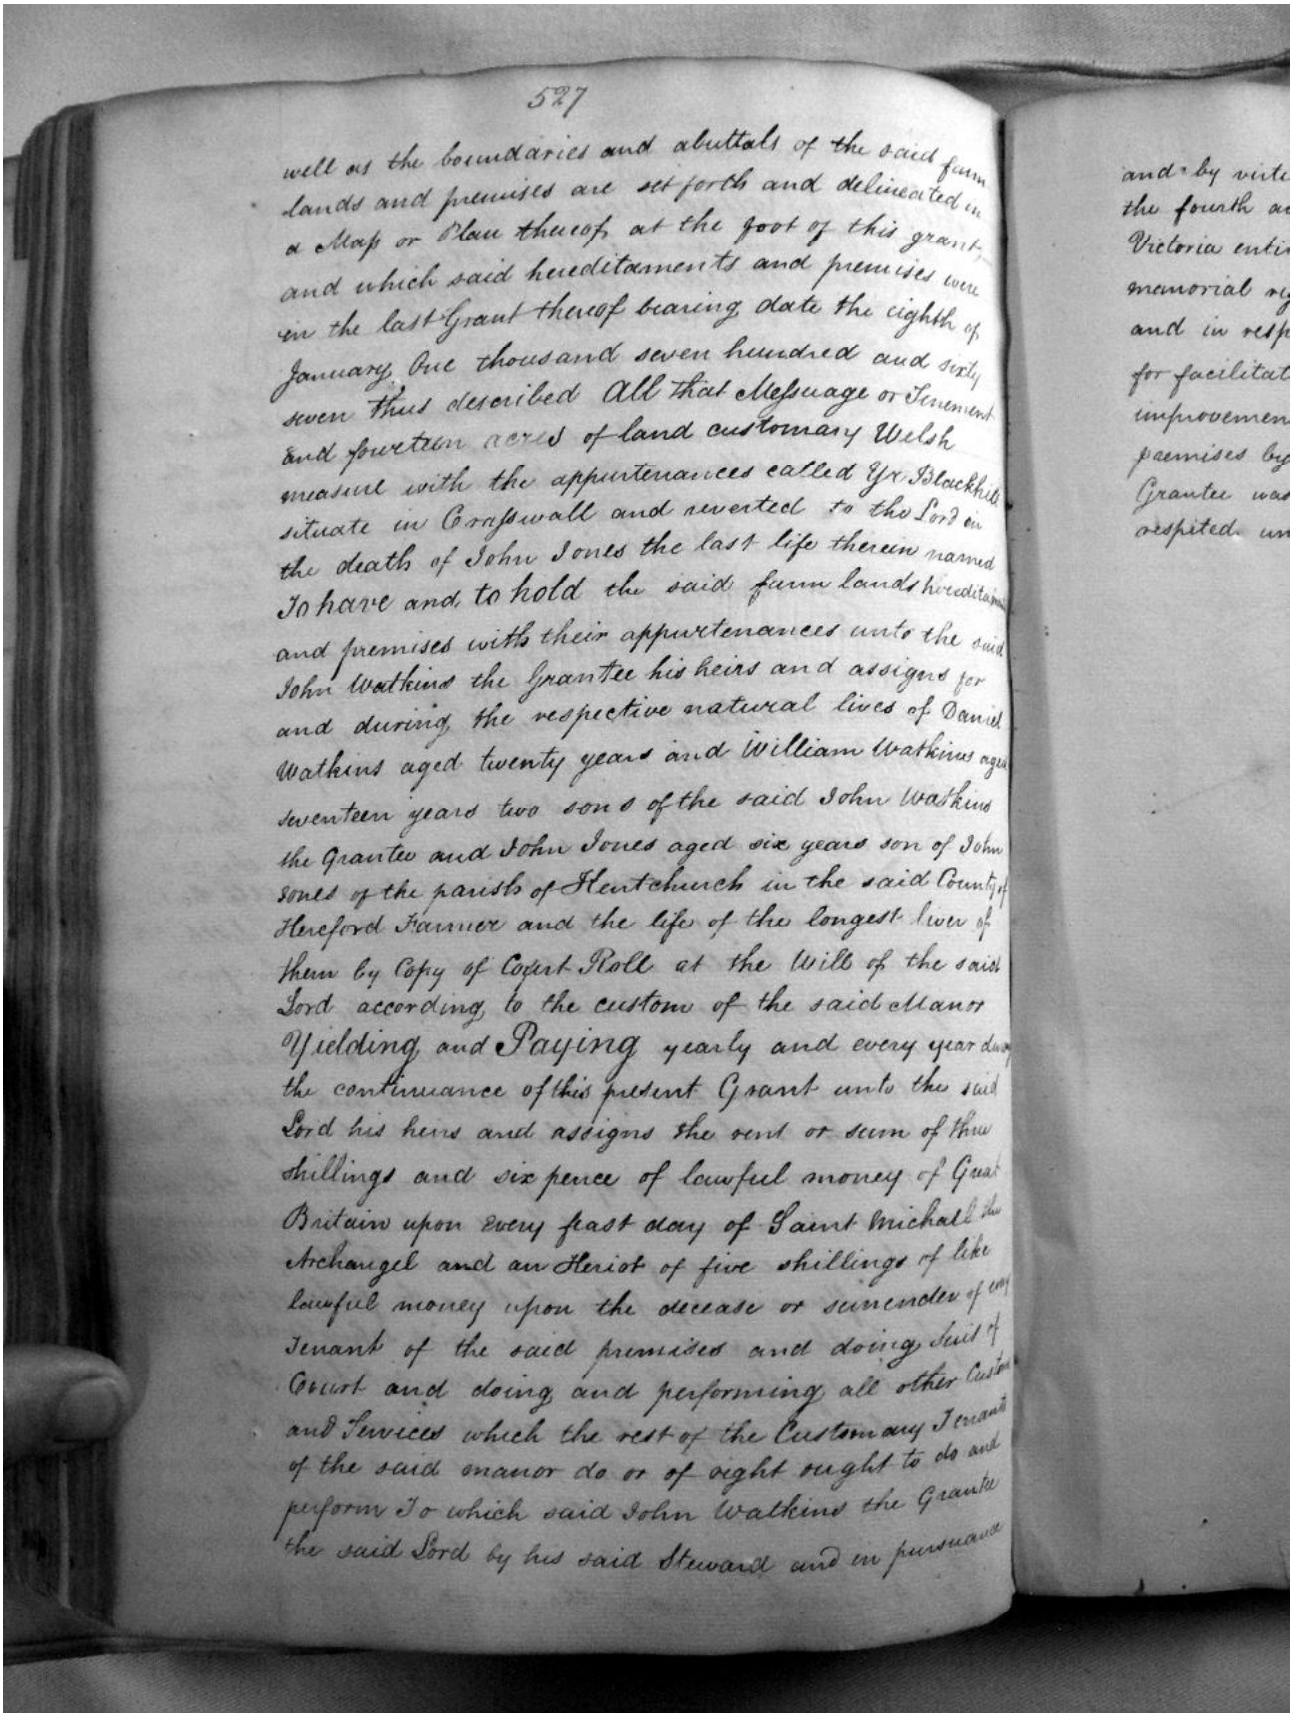 527
well as the boundaries and abuttals of the said farm
lands and premises are set forth and delineated in
a Map or Plan thereof at the foot of this grant,
and which said hereditaments and premises were
in the last Grant thereof bearing date the eighth of
January One thousand seven hundred and sixty
seven thus described All that Messuage or Tenement
and fourteen acres of land customary Welsh
measure with the appurtenances called Yr Blackhill
situate in Crasswall and reverted to the Lord in
the death of John Jones the last life therein named
To have and to hold the said farm lands hereditaments
and premises with their appurtenances unto the said
John Watkins the Grantee his heirs and assigns for
and during the respective natural lives of Daniel
Watkins aged twenty years and William Watkins aged
seventeen years two sons of the said John Watkins
the Grantee and John Jones aged six years son of John
Jones of the parish of Kentchurch in the said County of
Hereford Farmer and the life of the longest liver of
them by Copy of Court Roll at the Will of the said
Lord according to the custom of the said Manor
Yielding and Paying yearly and every year during
the continuance of this present Grant unto the said
Lord his heirs and assigns the rent or sum of three
shillings and six pence of lawful money of Great
Britain upon every feast day of Saint Michael the
Archangel and an Heriot of five shillings of like
lawful money upon the decease or surrender of every
Tenant of the said premises and doing Suit of
Court and doing and performing all other Customs
and Services which the rest of the Customary Tenants
of the said manor do or of right ought to do and
perform To which said John Watkins the Grantee
the said Lord by his said Steward and in pursuance
and by virt
the fourth a
Victoria enti
manorial rig
and in resp
for facilitat
improvemen
premises by
Grantee was
respited un